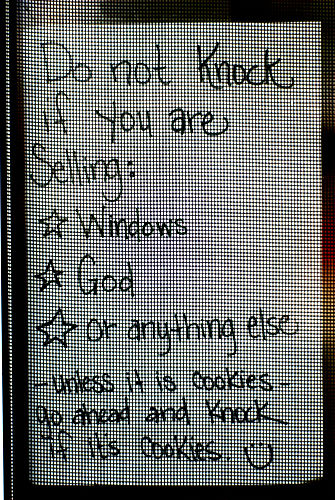 Do not Knock
if You are
Selling:
☆ Windows
☆ God
☆ or anything else
- unless it is Cookies -
go ahead and Knock
if its Cookies.